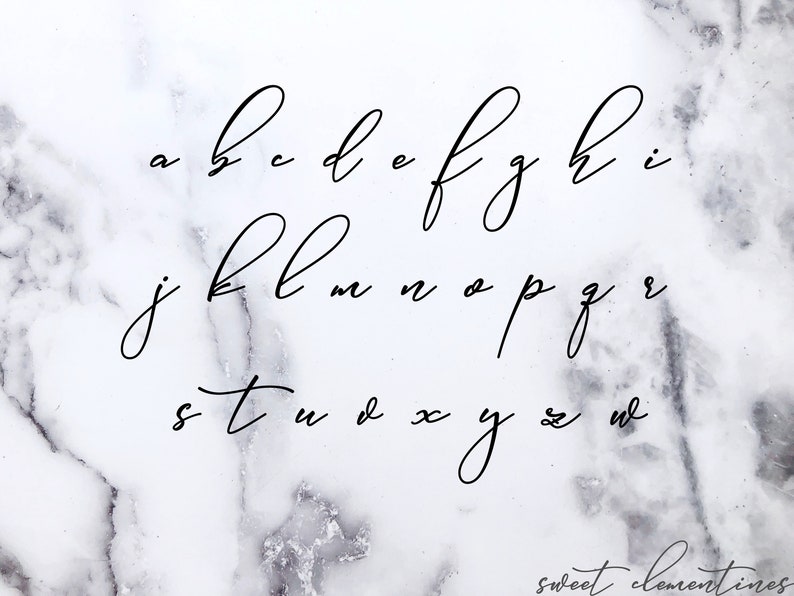 a b c d e f g h i
j k l m n o p q r
s t u v x y z w
sweet clementines